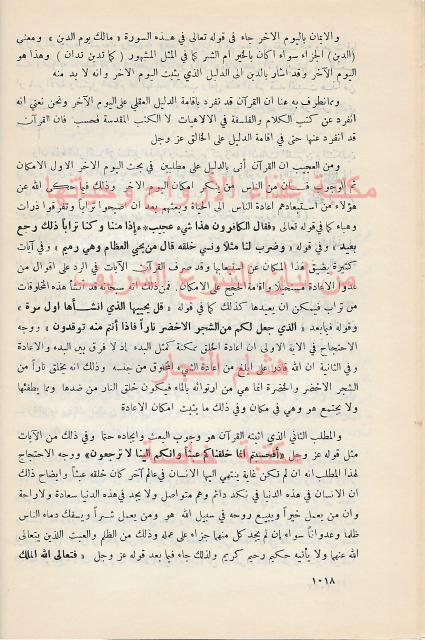 والايمان باليوم الآخر جاء في قوله تعالى في هذه السورة « مالك يوم الدين » ومعنى
(الدين) الجزاء سواء اكان بالخير ام الشر كما في المثل المشهور ( كما تدين تدان ) وهذا هو
اليوم الآخر وقد اشار بالدين الى الدليل الذي يثبت اليوم الآخر وانه لا بد منه
ومما نظرف به هنا ان القرآن قد تفرد باقامة الدليل العقلي على اليوم الآخر ونحن نعني انه
انفرد عن كتب الكلام والفلسفة في الالاهيات لا الكتب المقدسة فحسب فان القرآن
قد انفرد عنها حتى في اقامة الدليل على الخالق عز وجل
ومن العجيب ان القرآن أتى بالدليل على مطلبين في بحث اليوم الآخر الاول الامكان
ثم الوجوب من الناس من ينكر امكان اليوم الآخر وذلك الله عن
هؤلاء من استبعادهم اعادة الناس الى الحياة وبعثهم بعد ان اصبحوا تراباً وتفرقوا ذرات
وهباء كما في قوله تعالى «فقال الكافرون هذا شيء عجيب* ءإذا متنا وكنا تراباً ذلك رجع
بعيد » وفي قوله « وضرب لنا مثلا ونسي خلقه قال من يحيي العظام وهي رميم » وفي آيات
كثيرة يضيق هذا المكان عن استيعابها وقد صرف القرآن الآيات في الرد على اقوال من
عدوا الاعادة واقامة الحجج على الامكان الله سبحانه قد انشأ هذه المخلوقات
من تراب فيمكن ان يعيدها كذلك كما في قوله « قل يحييها الذي انشأها اول مرة »
وقوله فيما بعد « الذي جعل لكم من الشجر الاخضر ناراً فاذا أنتم منه توقدون » ووجه
الاحتجاج في الآية الاولى ان اعادة الخلق ممكنة كمثل البدء إذ لا فرق بين البدء والاعادة
وفي الثانية ان الله قادر على ابلغ من اعادة الشيء المخلوق من جنسه وذلك انه يخلق ناراً من
الشجر الاخضر والخضرة انما هي من ارتوائه بالماء فيكون خلق النار من ضدها وما يطفئها
ولا يجتمع هو وهي في مكان وفي ذلك ما يثبت امكان الاعادة
والمطلب الثاني الذي اثبته القرآن هو وجوب البعث وايجاده حتما وفي ذلك من الآيات
مثل قوله عز وجل «أفحسبتم انما خلقناكم عبثاً وانكم الينا لا ترجعون» ووجه الاحتجاج
لهذا المطلب انه ان لم تكن غاية ينتهي اليها الانسان في عالم آخر كان خلقه عبثاً وايضاح ذلك
ان الانسان في هذه الدنيا في نكد دائم وهم متواصل ولا يجد في هذه الدنيا سعادة ولا راحة
وان من يعمل خيراً ويبيع روحه في سبيل الله هو ومن يعمل شراً ويسفك دماء الناس
ظلماً وعدواناً سواء إن لم يجد كل منهما جزاء على عمله وذلك من الظلم والعبث اللذين يتعالى
الله عنهما ولا يأتيه حكيم رحيم كريم ولذلك جاء فيما بعد قوله عز وجل « فتعالى الله الملك
١٠١٨